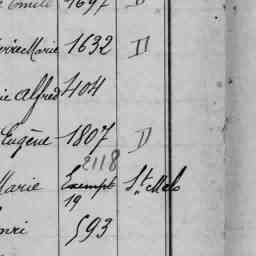 Emile 1697 D
Marie 1632 D
Alfred 404
Eugène 1807 D
2118
Marie Exempt St Malo
19
593